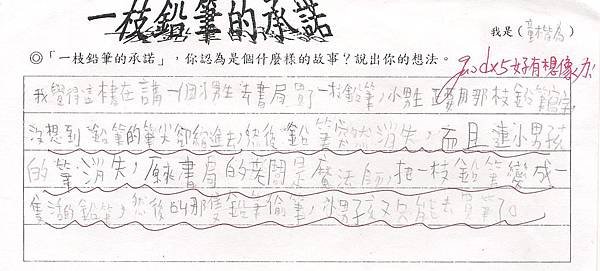 一枝鉛筆的承諾
我是(童楷為)
◎「一枝鉛筆的承諾」,你認為是個什麼樣的故事?說出你的想法。
goodx5好有想像力
我覺得這本在講一個小男生去書局買了一枝鉛筆,小男生要用那枝鉛筆寫字,
沒想到鉛筆的筆尖卻縮進去,然後鉛筆突然消失,而且連小男孩
的筆消失,原來書局的老闆是魔法師,把一枝鉛筆變成一
隻活的鉛筆,然後叫那隻鉛筆偷筆,小男孩又只能去買筆了。